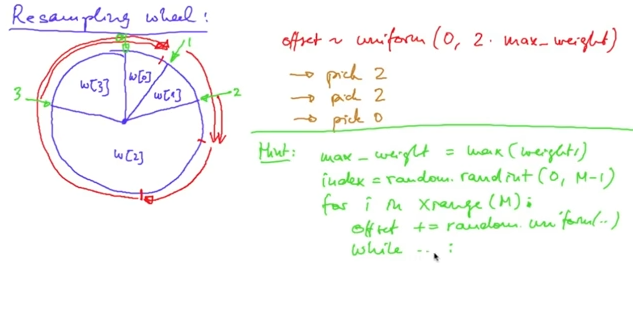 Resampling wheel:
offset ~ uniform (0, 2. max_weight)
→ pick 2
→ pick 2
→ pick 0
0
1
2
3
w[3]
w[0]
w[1]
w[2]
Hint:
max_weight = max(weights)
index = random.randint(0, M-1)
for i in xrange(M):
offset += random.uniform(..)
while ... :